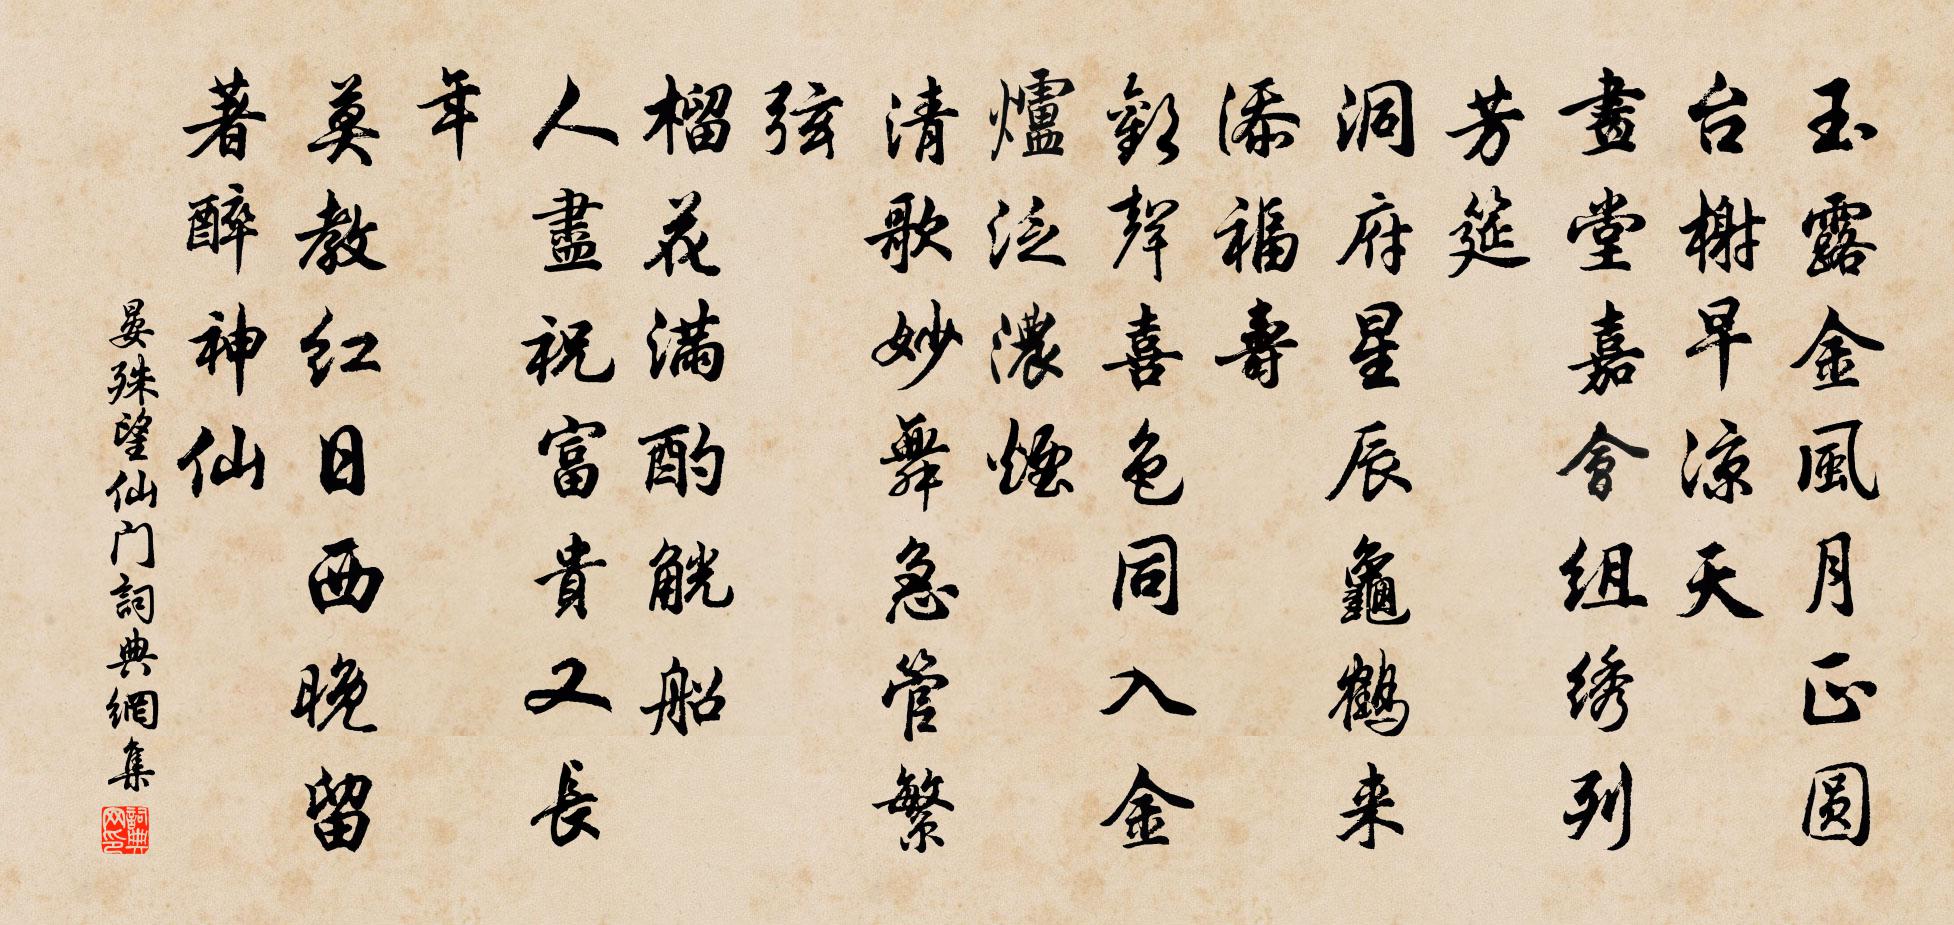 玉露金風月正圆
台榭早凉天
畫堂嘉會組绣列
芳筵
洞府星辰龜鶴来
添福壽
歡聲喜色同入金
爐泛濃煙
清歌妙舞急管繁
弦
榴花满酌觥船
人盡祝富貴又長
年
莫教红日西晚留
著醉神仙
晏殊望仙门詞典網集
詞典网印